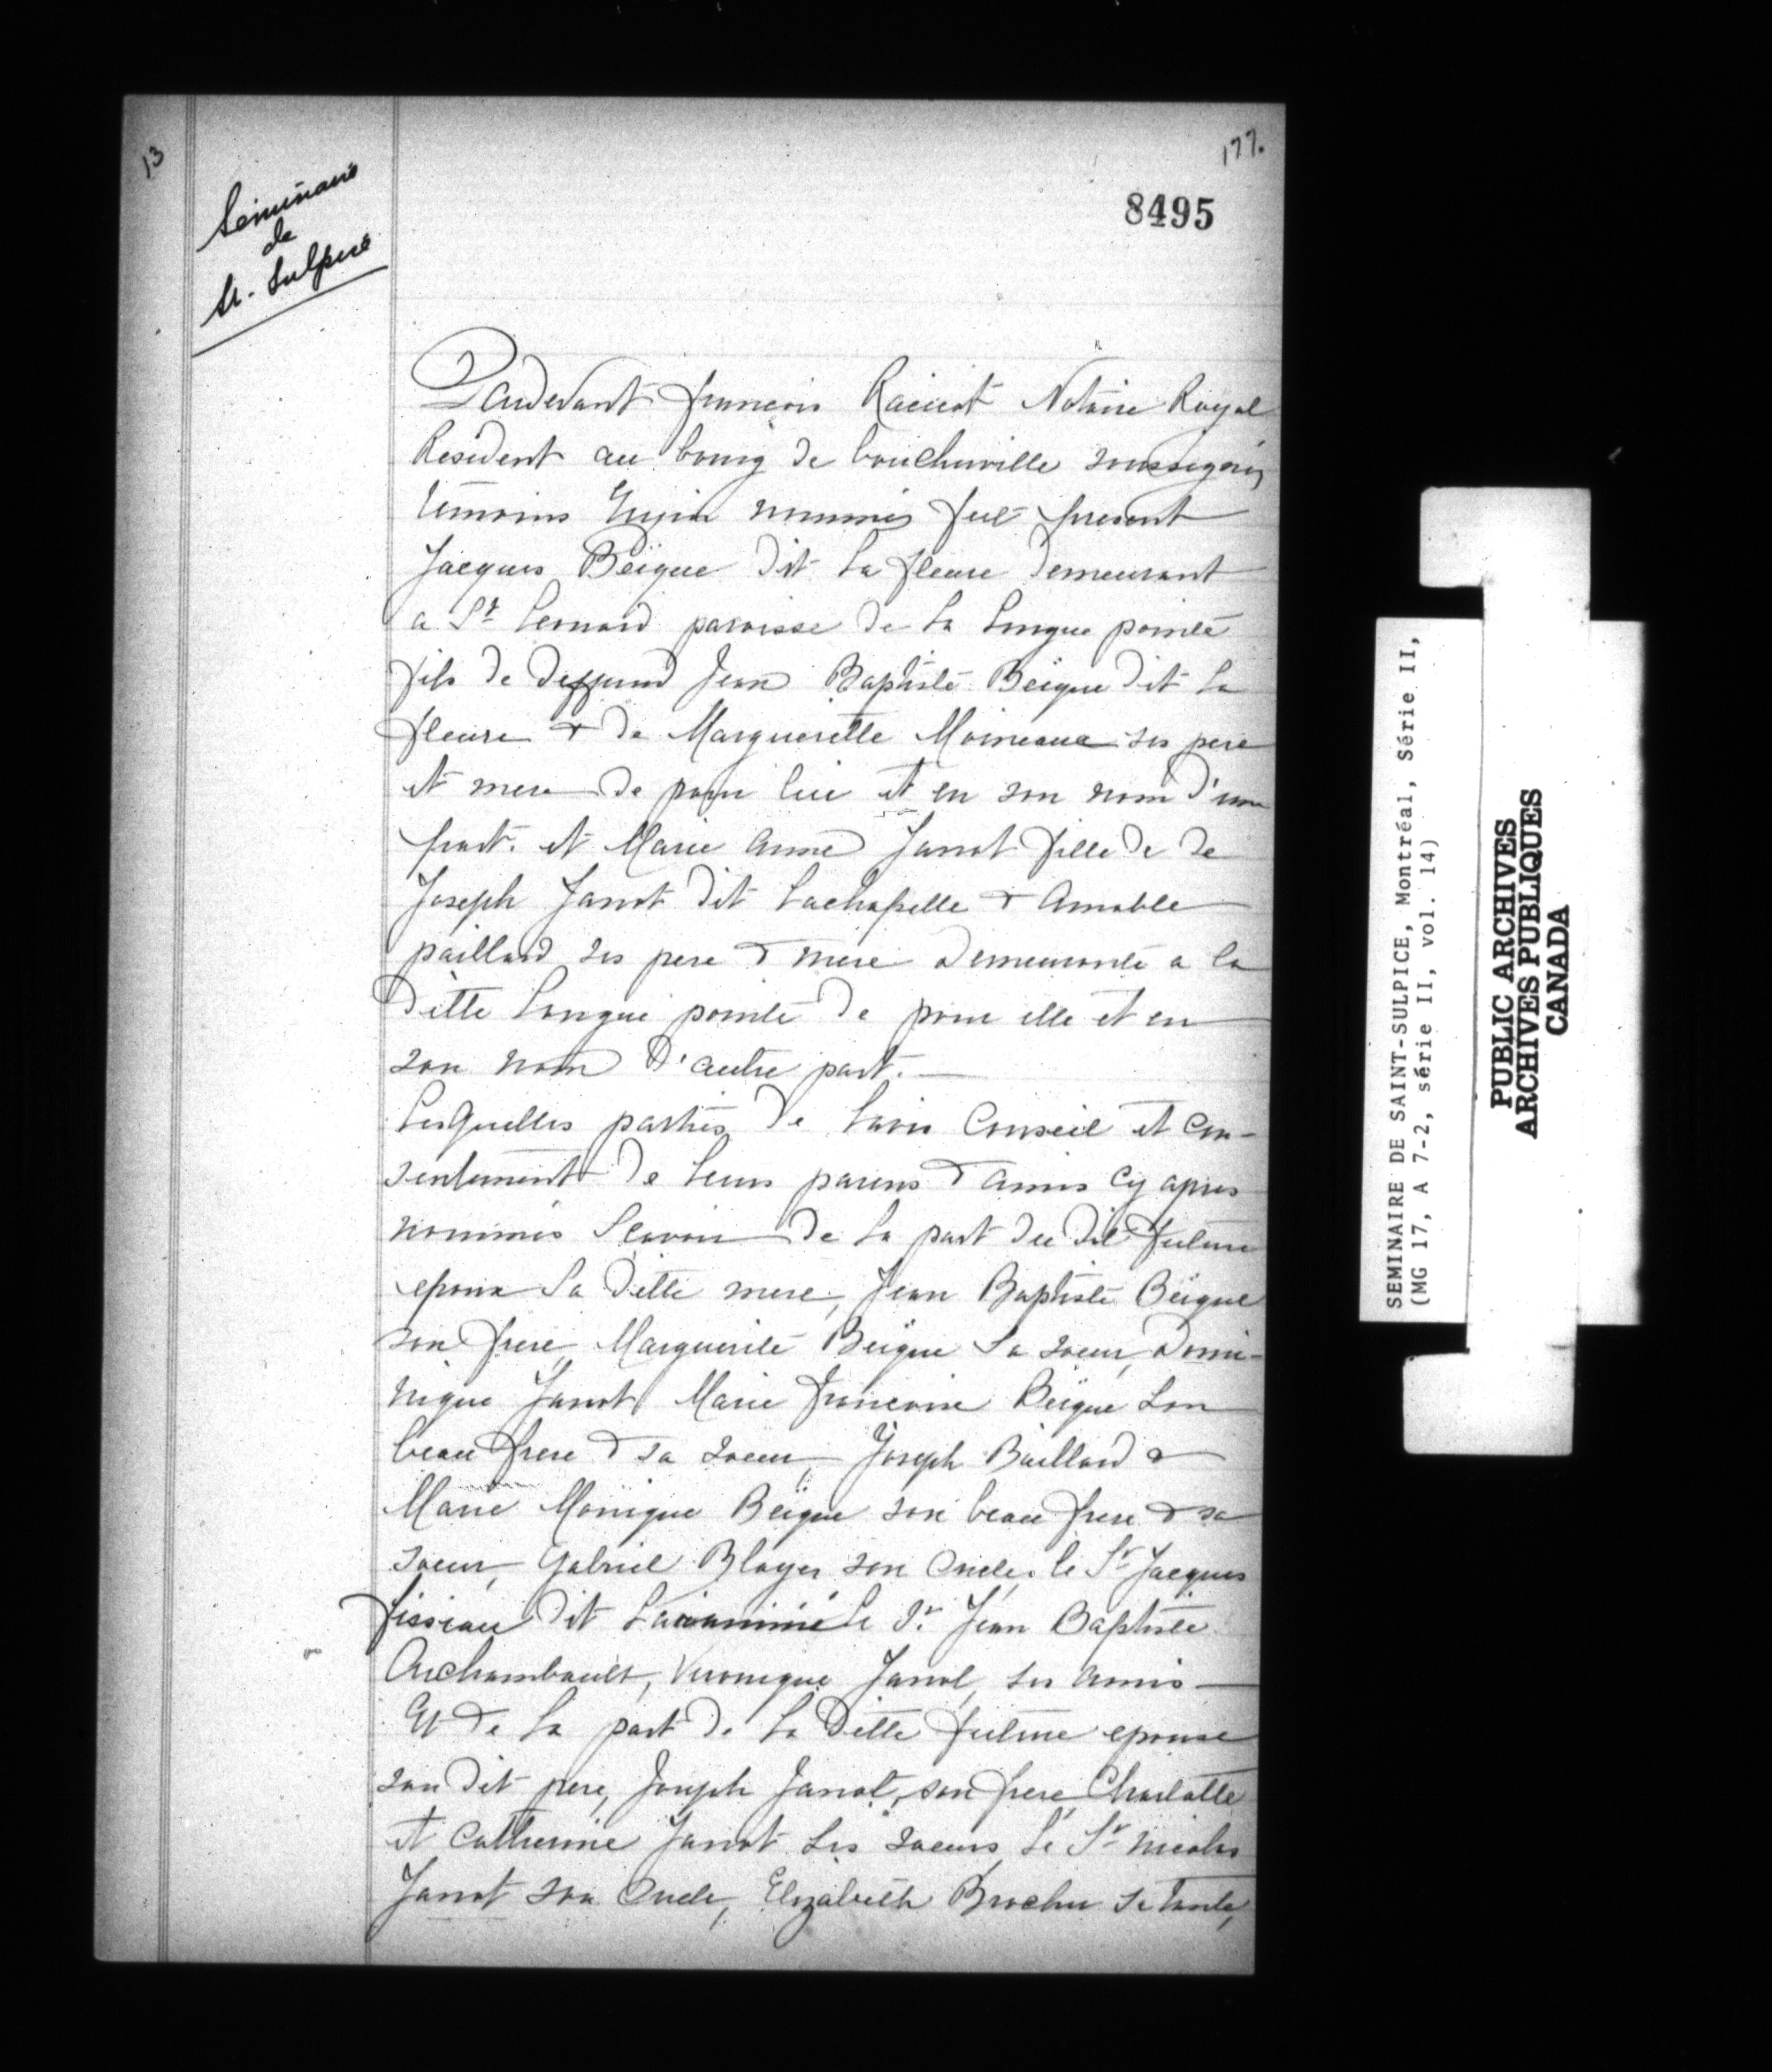 13
177.
8495
Séminaire
de
St. Sulpice
Pardevant francois Racicot Notaire Royal
Résident au bourg de boucherville soussigné,
témoins Enfin nommés fut present
Jacques Beïque dit La fleure demeurant
a St Leonard paroisse de La Longue pointe
fils de deffund Jean Baptiste Beïque dit La
fleure & de Marguerette Moineaux ses pere
et mere de pour lui et en son nom d'une
part. et Marie Anne Janot fille de de
Joseph Janot dit Lachapelle & Amable
paillard ses pere & mere demeurante a la
ditte Longue pointe de pour elle et en
son nom d'autre part.
Lesquelles parties de Lavis Conseil et Con-
sentement de Leurs parens & amis cy apres
nommés Scavoir de La part du dit future
epoux Sa ditte mere, Jean Baptiste Beïque
son frere, Marguerite Beïque Sa soeur, Domi-
nique Janot Marie francoise Beïque Son
beau frere & sa soeur, Joseph Baillard &
Marie Monique Beïque son beau frere & sa
soeur, Gabriel Blayer son Oncle, le Sr Jacques
fissiau dit Laramine le Sr. Jean Baptiste
Archambault, Veronique Janot, ses amis
Et de La part de La ditte future epouse
son dit pere, Joseph Janot, son frere, Charlotte
et Catherine Janot Ses soeurs, Le Sr Nicolas
Janot son Oncle, Elizabeth Brochu Sa tante,
SEMINAIRE DE SAINT-SULPICE, Montréal, Série II,
(MG 17, A 7-2, série II, vol. 14)
PUBLIC ARCHIVES
ARCHIVES PUBLIQUES
CANADA